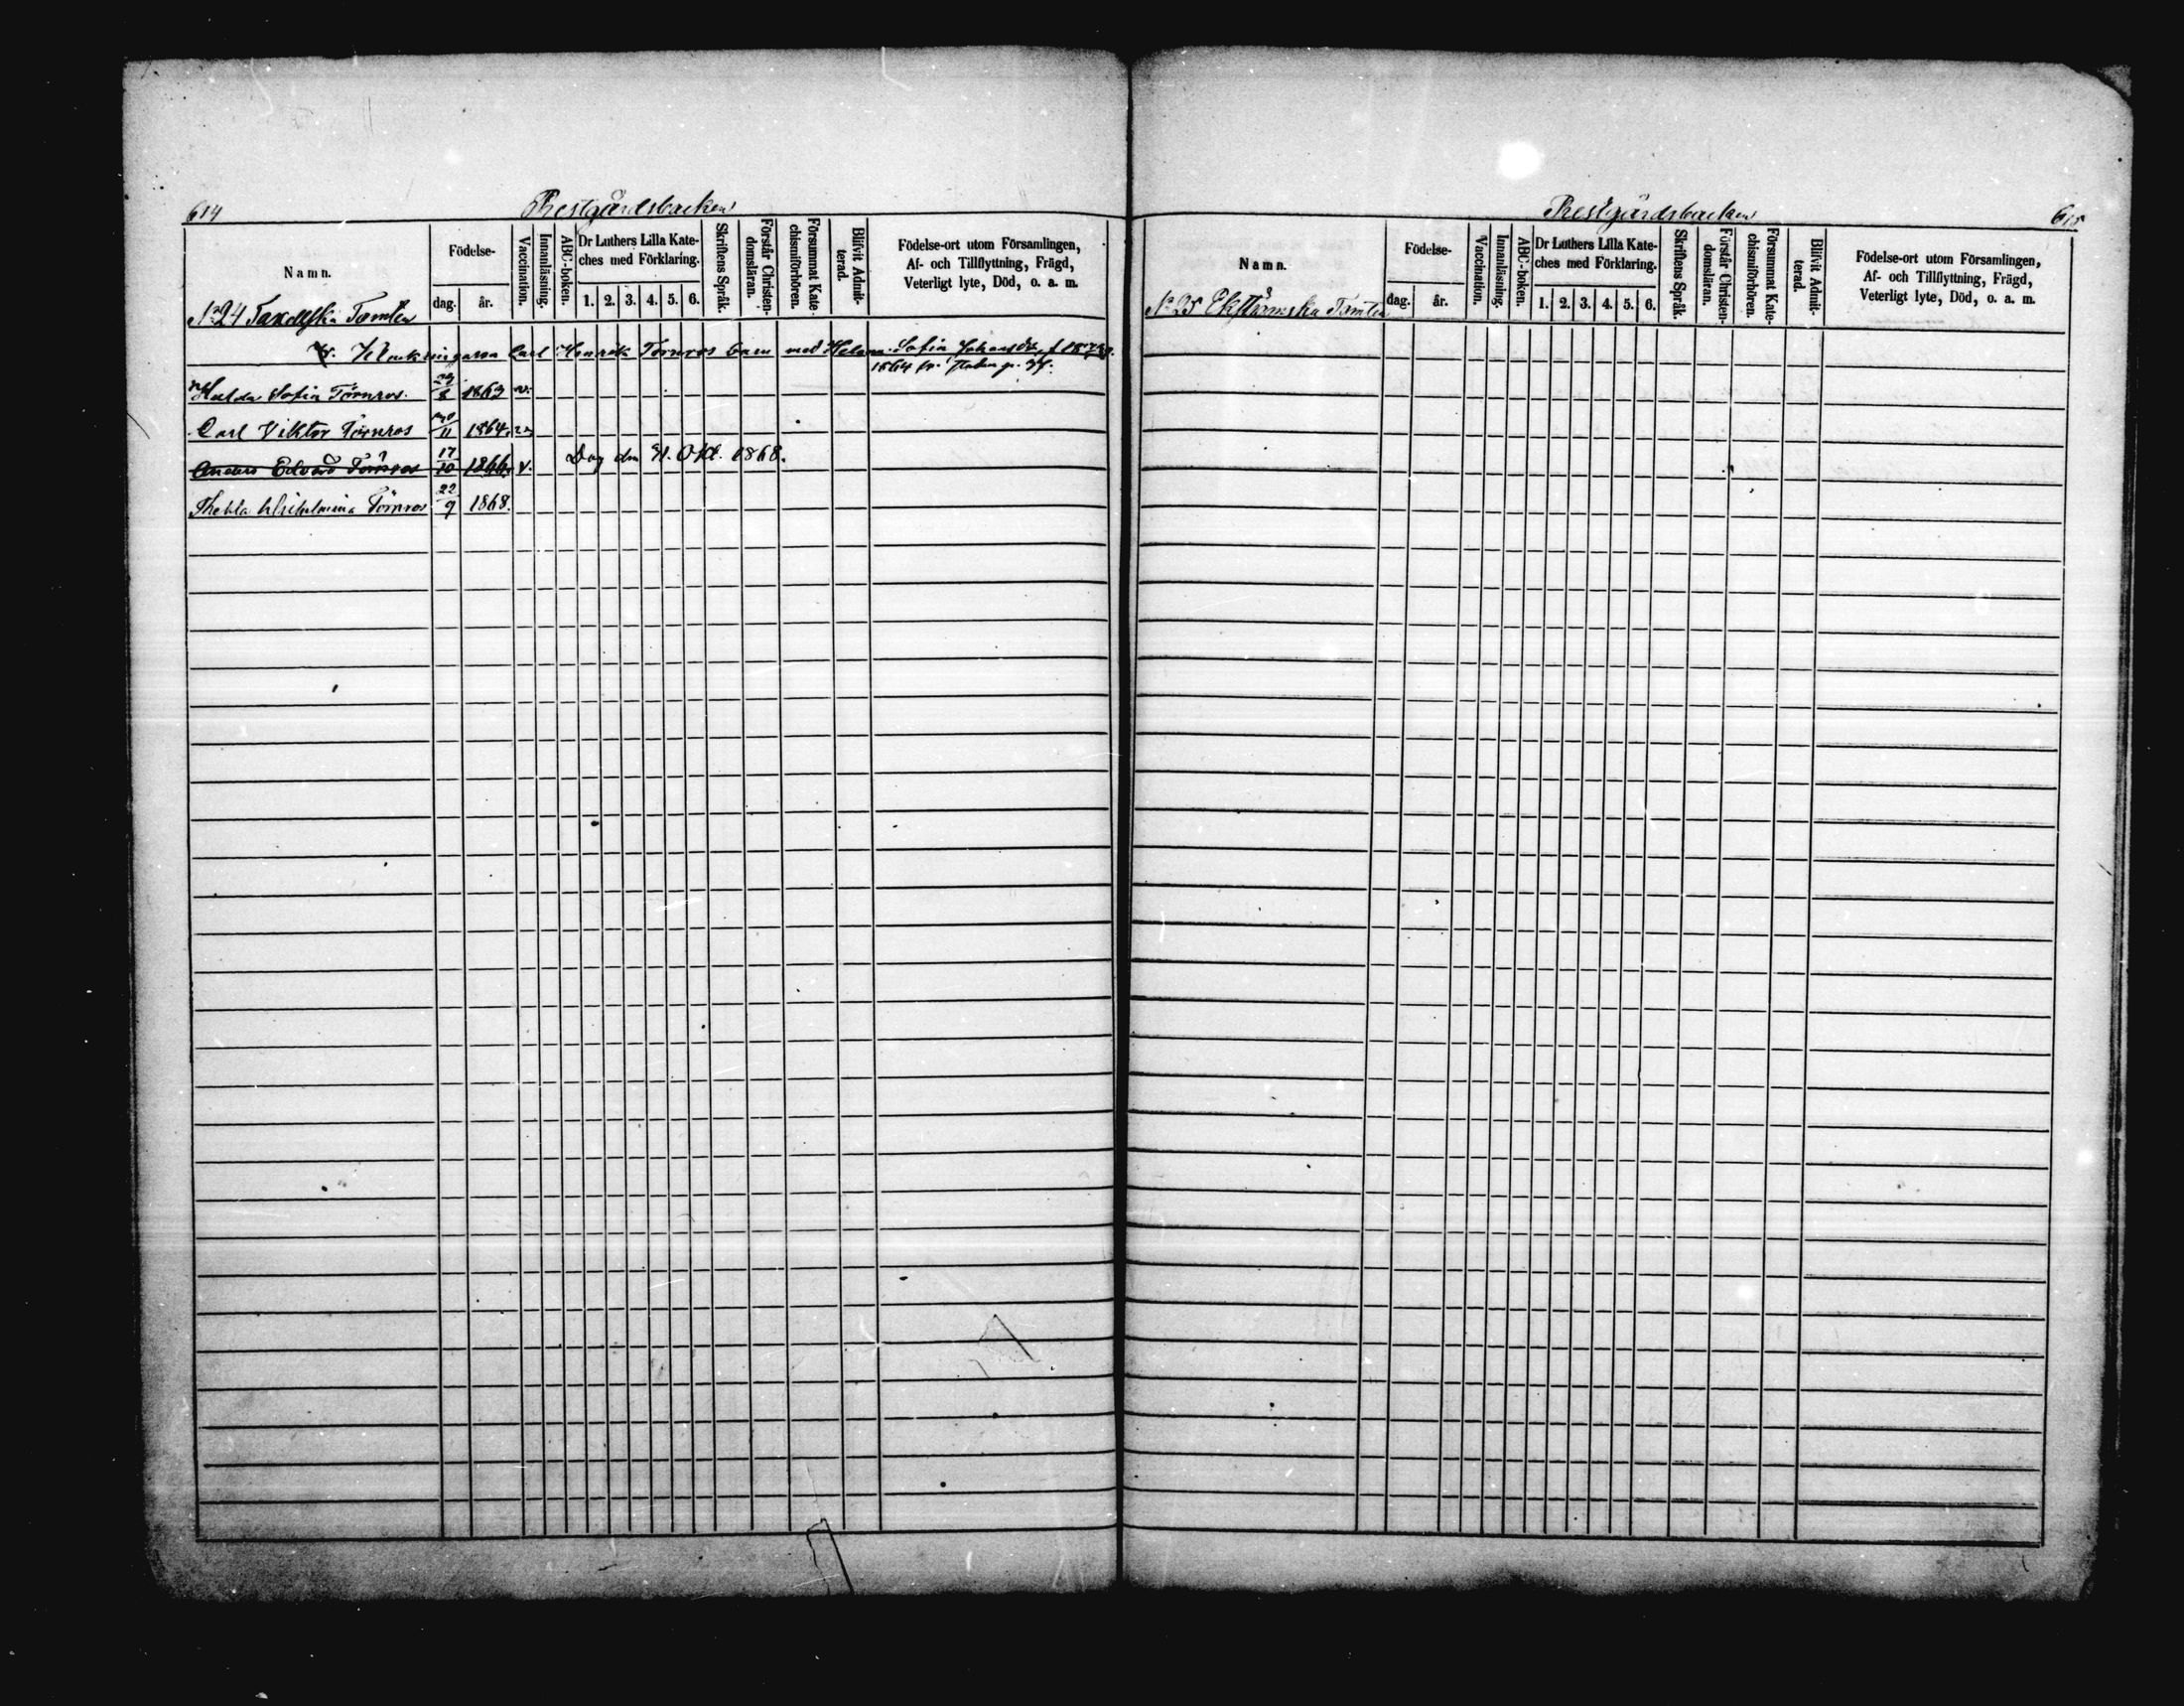 614
Prestgårdsbacken
Namn.
Födelse-
dag.
år.
Vaccination.
Innanläsning.
ABC-boken.
Dr Luthers Lilla Kate-
ches med Förklaring.
1. 2. 3. 4. 5. 6.
Skriftens Språk.
Förstår Christen-
domsläran.
Försummat Kate-
chismiförhören.
Blifvit Admit-
terad.
Födelse-ort utom Församlingen,
Af- och Tillflyttning, Frägd,
Veterligt lyte, Död, o. a. m.
No 24 Taxellska Tomten
Carl Henrik Törnros barn med Helena Sofia
1864 fr.
Hulda Sofia Törnros. 1863 v.
Carl Viktor Törnros 11 1864. v.
Anders Edvard Törnros 17/10 1866. v. Dog den 31. Okt. 1868.
Thekla Wilhelmina Törnros 22/9 1868.
Prestgårdsbacken
615
Namn.
Födelse-
dag.
år.
Vaccination.
Innanläsning.
ABC-boken.
Dr Luthers Lilla Kate-
ches med Förklaring.
1. 2. 3. 4. 5. 6.
Skriftens Språk.
Förstår Christen-
domsläran.
Försummat Kate-
chismiförhören.
Blifvit Admit-
terad.
Födelse-ort utom Församlingen,
Af- och Tillflyttning, Frägd,
Veterligt lyte, Död, o. a. m.
No 25 Ekströmska Tomten